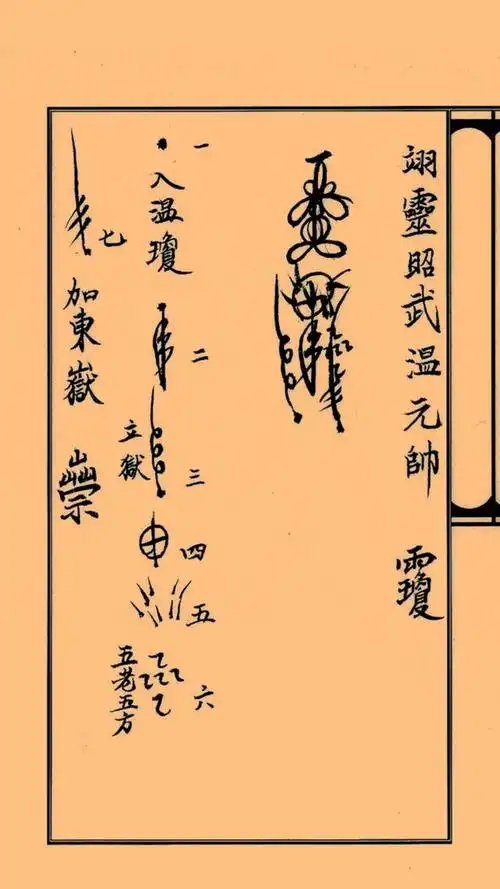 翊靈昭武温元帥
一
入温瓊
二
三
立獄
四
五
六
五老五方
七
加東嶽